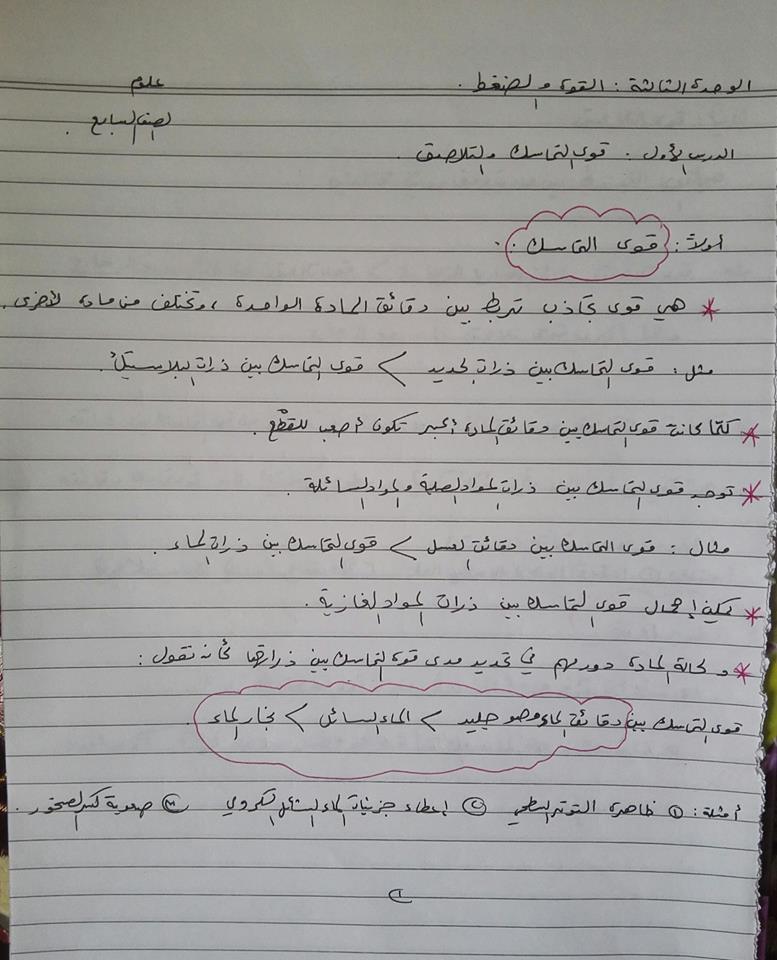 الوحدة الثالثة : القوة والضغط . علوم
الصف السابع .
الدرس الأول : قوى التماسك والتلاصق .
أولاً : قوى التماسك .
* هي قوى تجاذب تربط بين دقائق المادة الواحدة ، وتختلف من مادة لأخرى .
مثل : قوى التماسك بين ذرات الحديد > قوى التماسك بين ذرات البلاستيك .
* كلما كانت قوى التماسك بين دقائق المادة أكبر تكون أصعب للقطْع .
* توجد قوى التماسك بين ذرات المواد الصلبة والمواد السائلة .
مثال : قوى التماسك بين دقائق العسل > قوى التماسك بين ذرات الماء .
* يمكن إهمال قوى التماسك بين ذرات المواد الغازية .
* ولحالة المادة دور مهم في تحديد مدى قوة التماسك بين ذراتها كأن نقول :
قوى التماسك بين دقائق الماء وهو جليد > الماء السائل > بخار الماء .
أمثلة : ① ظاهرة التوتر السطحي ② إعطاء جزيئات الماء الشكل الكروي ③ صعوبة كسر الصخور .